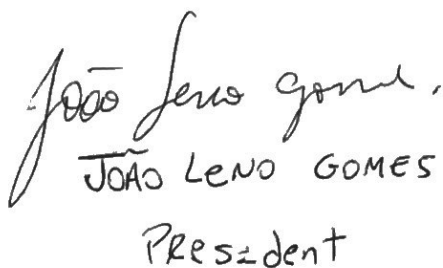 João Leno Gomes.
JOÃO LENO GOMES
PResident